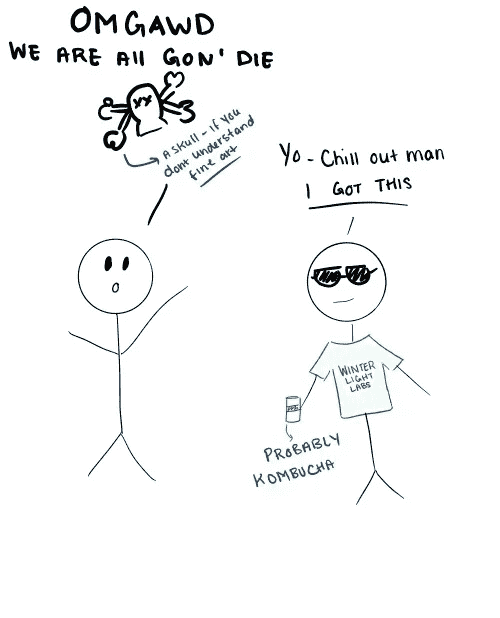 OMGAWD
WE ARE All GON' DIE
A SKUll - if you
dont understand
fine art
Yo - Chill out man
I GOT THIS
WINTER
LIGHT
LABS
PROBABLY
KOMBUCHA